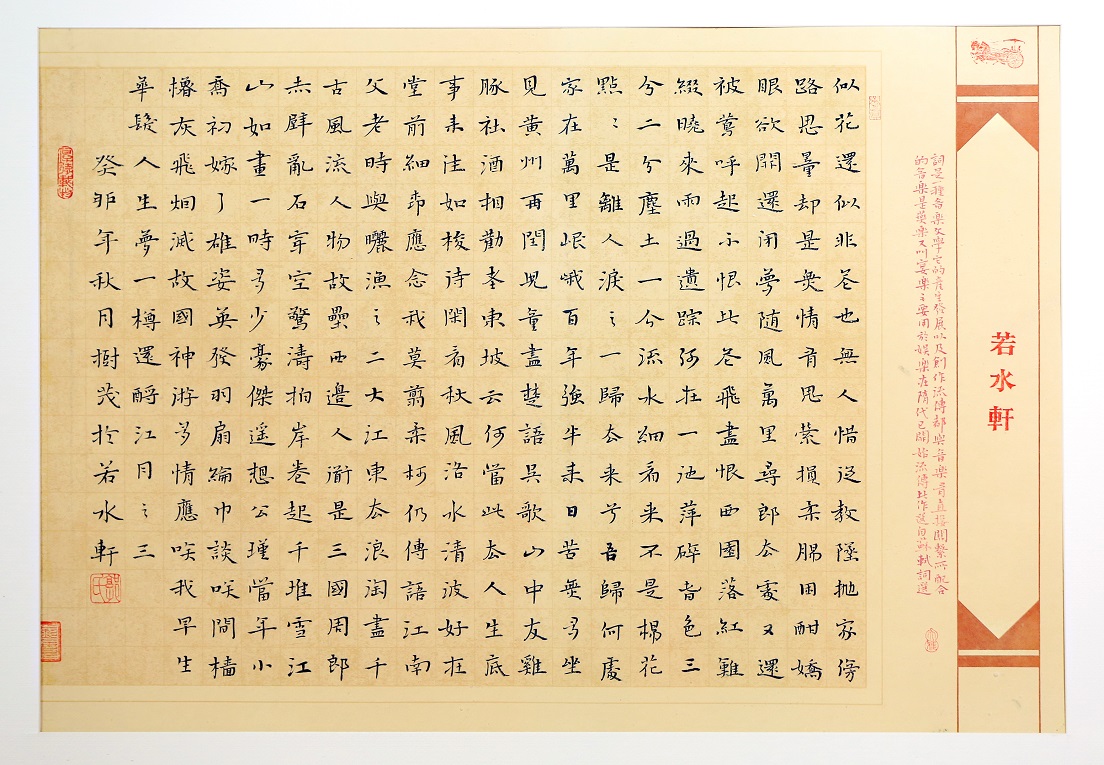 若水軒
詞是一種音樂文學它的產生發展以及創作流傳都與音樂有直接關繫所配合
的音樂是燕樂又叫宴樂主要用於娛樂在隋代已開始流傳此作選自蘇軾詞選
似花還似非花也無人惜從教墜拋家傍
路思量却是無情有思縈損柔腸困酣嬌
眼欲開還閉夢隨風萬里尋郎去處又還
被鶯呼起不恨此花飛盡恨西園落紅難
綴曉來雨過遺踪何在一池萍碎春色三
分二分塵土一分流水細看來不是楊花
點〻是離人淚之一歸去來兮吾歸何處
家在萬里岷峨百年強半來日苦無多坐
見黄州再閏兒童盡楚語吳歌山中友雞
豚社酒相勸老東坡云何當此去人生底
事來往如梭待閑看秋風洛水清波好在
堂前細柳應念我莫翦柔柯仍傳語江南
父老時與曬漁之二大江東去浪淘盡千
古風流人物故壘西邊人道是三國周郎
赤壁亂石穿空驚濤拍岸卷起千堆雪江
山如畫一時多少豪傑遙想公瑾當年小
喬初嫁了雄姿英發羽扇綸巾談笑間檣
櫓灰飛烟滅故國神游多情應笑我早生
華髮人生夢一樽還酹江月之三
癸卯年秋月樹茂於若水軒